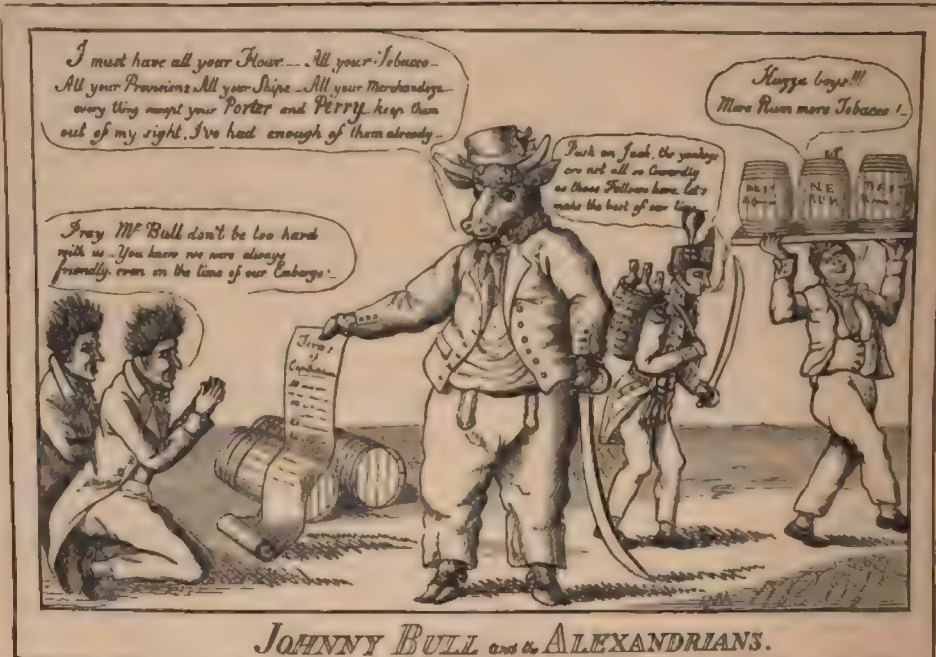 I must have all your Flour — All your Tobacco —
All your Provisions All your Ships — All your Merchandize
every thing except your Porter and Perry keep them
out of my sight, I've had enough of them already —
Pray Mr Bull don't be too hard
with us — You know we were always
friendly, even in the time of our Embargo!
Terms
of
Capitulation
Push on Jack, the yankeys
are not all so Cowardly
as these Fellows here let's
make the best of our time
Huzza boys!!!
More Rum more Tobacco!
JOHNNY BULL and the ALEXANDRIANS.